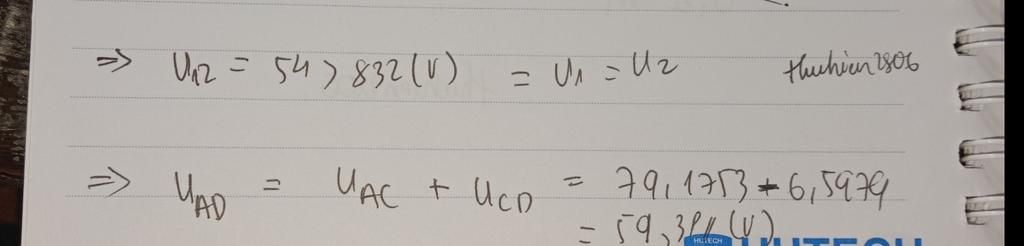 => U12 = 54,832 (V) = U1 = U2 thuhien2806
=> UAD = UAC + UCD = 79,1753 - 6,5979
= 59,3 (V)
HUTECH
HUTECH